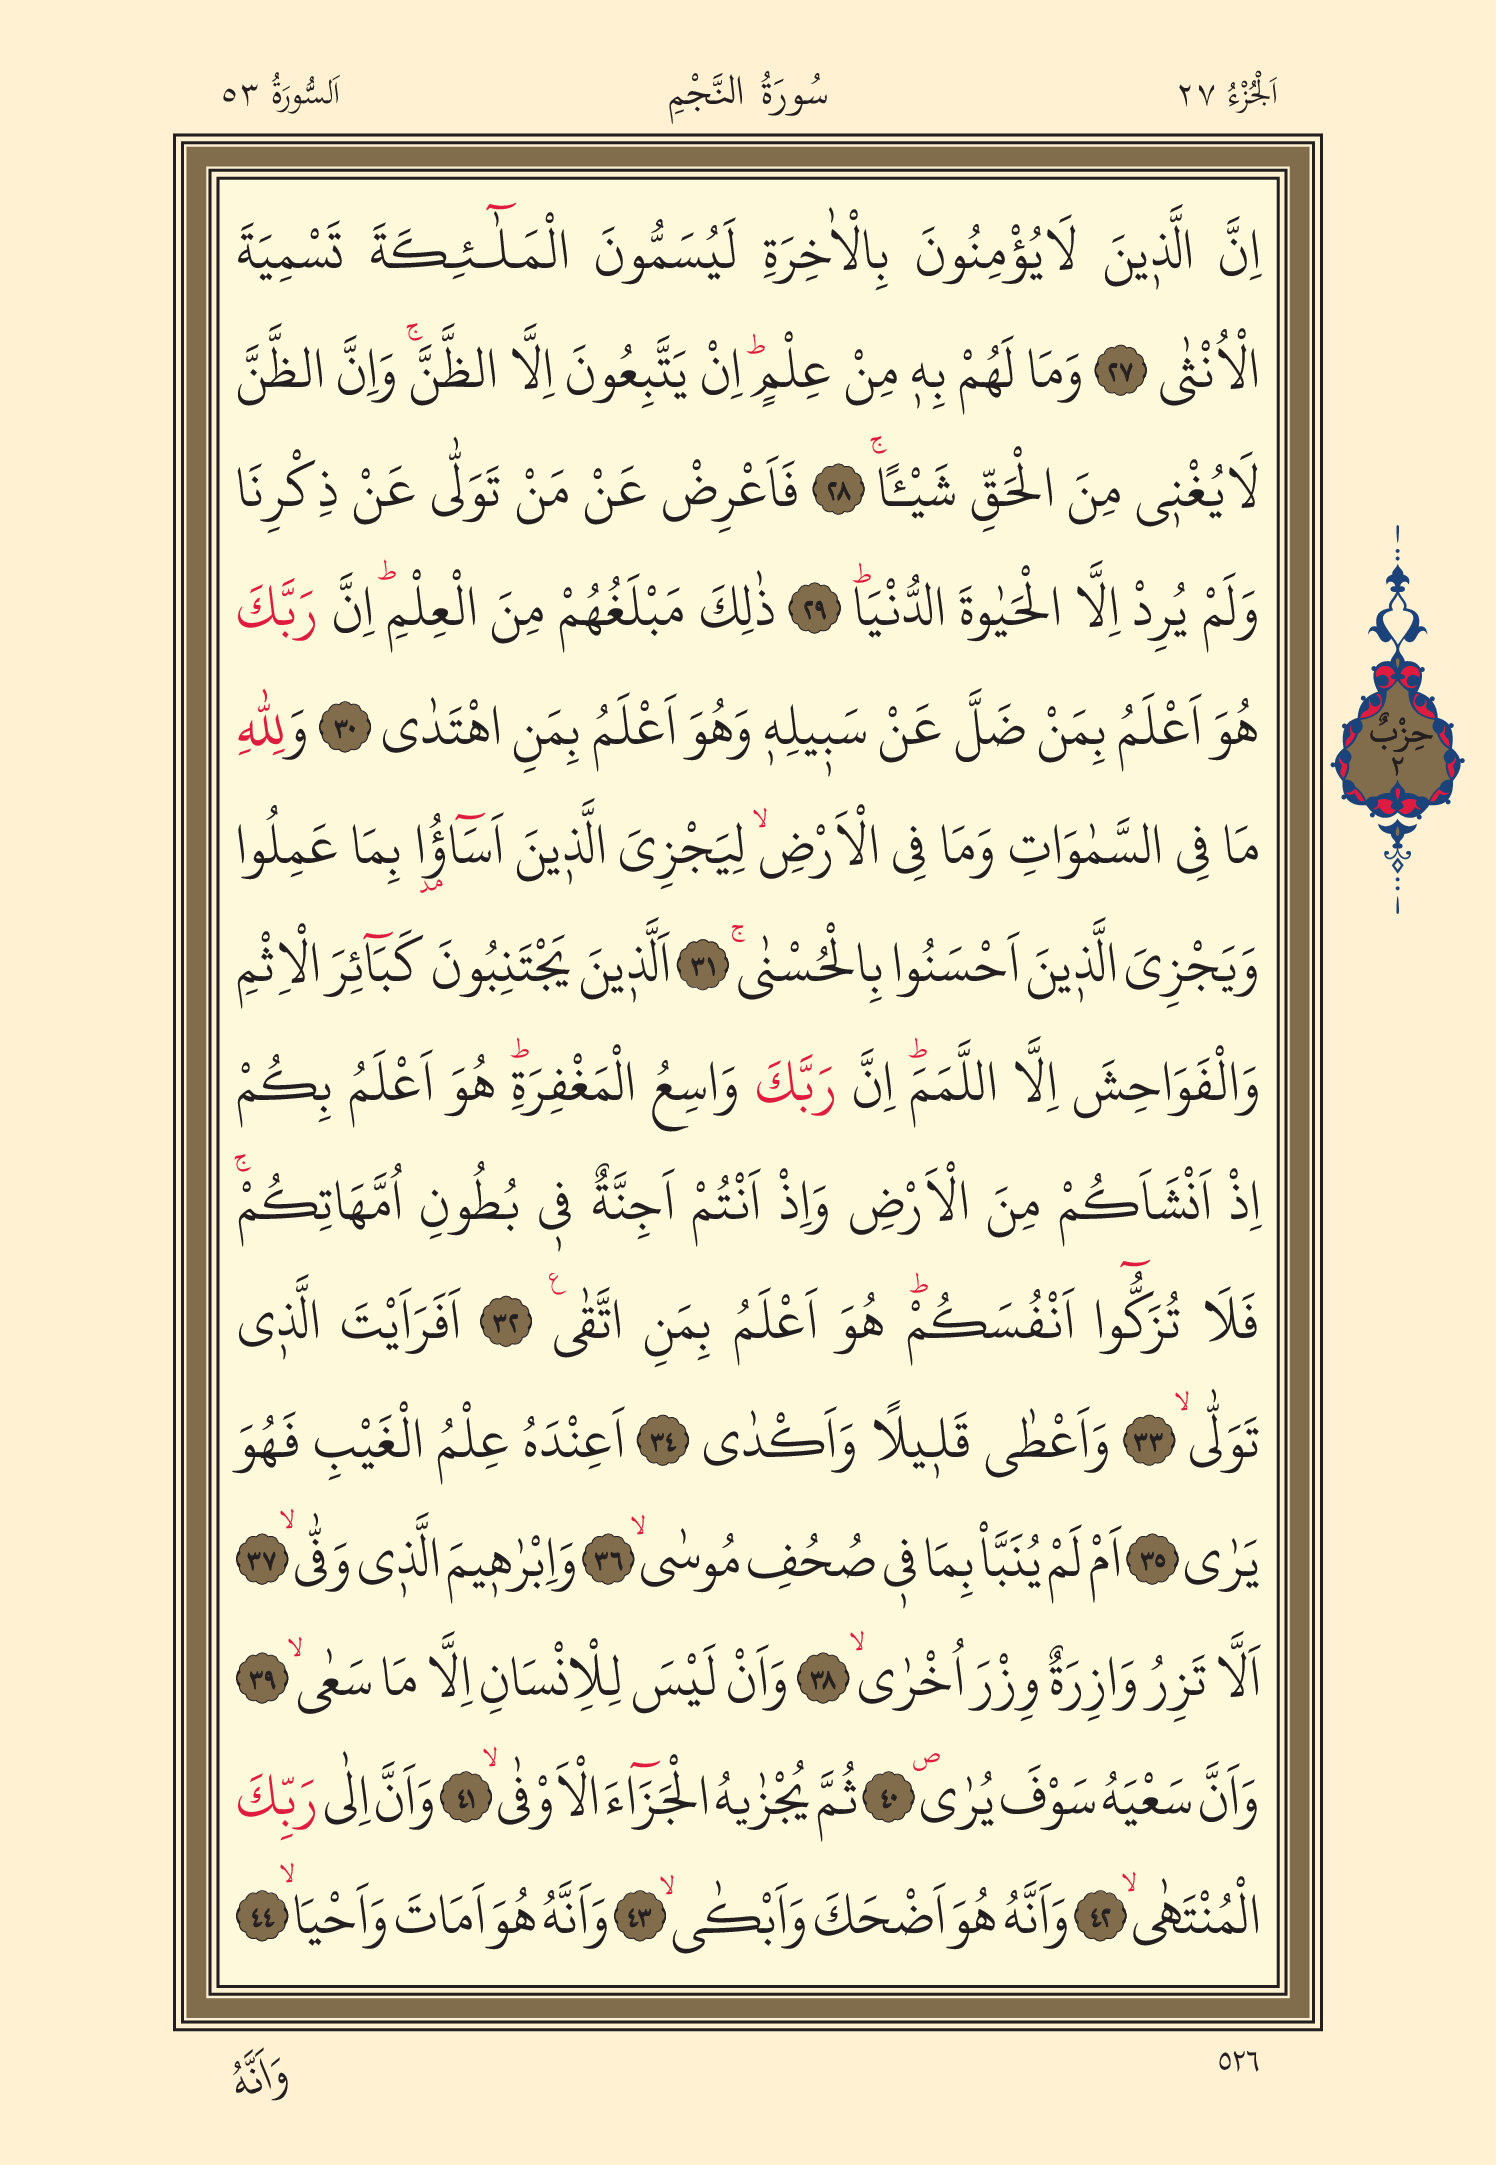 اَلْجُزْءُ ٢٧
سُورَةُ النَّجْمِ
اَلسُّورَةُ ٥٣
اِنَّ الَّذ۪ينَ لَا يُؤْمِنُونَ بِالْاٰخِرَةِ لَيُسَمُّونَ الْمَلٰٓئِكَةَ تَسْمِيَةَ
الْاُنْثٰى ٢٧ وَمَا لَهُمْ بِه۪ مِنْ عِلْمٍۜ اِنْ يَتَّبِعُونَ اِلَّا الظَّنَّۚ وَاِنَّ الظَّنَّ
لَا يُغْن۪ى مِنَ الْحَقِّ شَيْـًٔاۚ ٢٨ فَاَعْرِضْ عَنْ مَنْ تَوَلّٰى عَنْ ذِكْرِنَا
وَلَمْ يُرِدْ اِلَّا الْحَيٰوةَ الدُّنْيَاۜ ٢٩ ذٰلِكَ مَبْلَغُهُمْ مِنَ الْعِلْمِۜ اِنَّ رَبَّكَ
هُوَ اَعْلَمُ بِمَنْ ضَلَّ عَنْ سَب۪يلِه۪ وَهُوَ اَعْلَمُ بِمَنِ اهْتَدٰى ٣٠ وَلِلّٰهِ
مَا فِى السَّمٰوَاتِ وَمَا فِى الْاَرْضِۙ لِيَجْزِىَ الَّذ۪ينَ اَسَٓاؤُ۫ا بِمَا عَمِلُوا
وَيَجْزِىَ الَّذ۪ينَ اَحْسَنُوا بِالْحُسْنٰىۚ ٣١ اَلَّذ۪ينَ يَجْتَنِبُونَ كَبَٓائِرَ الْاِثْمِ
وَالْفَوَاحِشَ اِلَّا اللَّمَمَۜ اِنَّ رَبَّكَ وَاسِعُ الْمَغْفِرَةِۜ هُوَ اَعْلَمُ بِكُمْ
اِذْ اَنْشَاَكُمْ مِنَ الْاَرْضِ وَاِذْ اَنْتُمْ اَجِنَّةٌ ف۪ى بُطُونِ اُمَّهَاتِكُمْۚ
فَلَا تُزَكُّٓوا اَنْفُسَكُمْۜ هُوَ اَعْلَمُ بِمَنِ اتَّقٰى ع ٣٢ اَفَرَاَيْتَ الَّذ۪ى
تَوَلّٰىۙ ٣٣ وَاَعْطٰى قَل۪يلًا وَاَكْدٰى ٣٤ اَعِنْدَهُ عِلْمُ الْغَيْبِ فَهُوَ
يَرٰى ٣٥ اَمْ لَمْ يُنَبَّاْ بِمَا ف۪ى صُحُفِ مُوسٰىۙ ٣٦ وَاِبْرٰه۪يمَ الَّذ۪ى وَفّٰىۙ ٣٧
اَلَّا تَزِرُ وَازِرَةٌ وِزْرَ اُخْرٰىۙ ٣٨ وَاَنْ لَيْسَ لِلْاِنْسَانِ اِلَّا مَا سَعٰىۙ ٣٩
وَاَنَّ سَعْيَهُ سَوْفَ يُرٰىۖ ٤٠ ثُمَّ يُجْزٰيهُ الْجَزَٓاءَ الْاَوْفٰىۙ ٤١ وَاَنَّ اِلٰى رَبِّكَ
الْمُنْتَهٰىۙ ٤٢ وَاَنَّهُ هُوَ اَضْحَكَ وَاَبْكٰىۙ ٤٣ وَاَنَّهُ هُوَ اَمَاتَ وَاَحْيَاۙ ٤٤
حِزْبٌ
٢
٥٢٦
وَاَنَّهُ